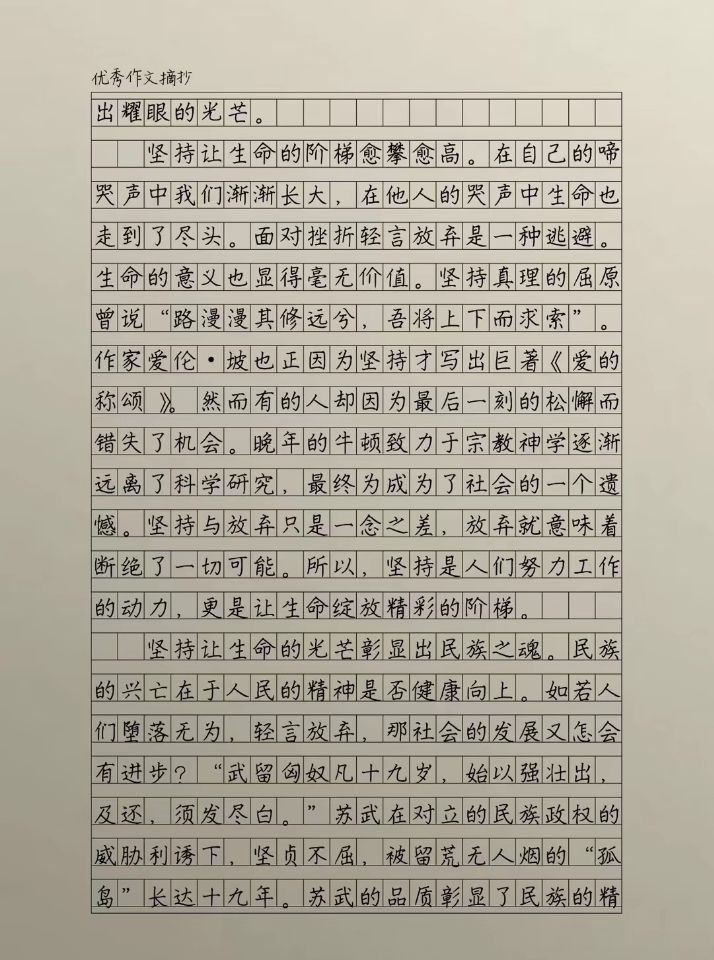 优秀作文摘抄
出耀眼的光芒。
坚持让生命的阶梯愈攀愈高。在自己的啼
哭声中我们渐渐长大，在他人的哭声中生命也
走到了尽头。面对挫折轻言放弃是一种逃避。
生命的意义也显得毫无价值。坚持真理的屈原
曾说“路漫漫其修远兮，吾将上下而求索”。
作家爱伦·坡也正因为坚持才写出巨著《爱的
称颂》。然而有的人却因为最后一刻的松懈而
错失了机会。晚年的牛顿致力于宗教神学逐渐
远离了科学研究，最终为成为了社会的一个遗
憾。坚持与放弃只是一念之差，放弃就意味着
断绝了一切可能。所以，坚持是人们努力工作
的动力，更是让生命绽放精彩的阶梯。
坚持让生命的光芒彰显出民族之魂。民族
的兴亡在于人民的精神是否健康向上。如若人
们堕落无为，轻言放弃，那社会的发展又怎会
有进步？“武留匈奴凡十九岁，始以强壮出，
及还，须发尽白。”苏武在对立的民族政权的
威胁利诱下，坚贞不屈，被留荒无人烟的“孤
岛”长达十九年。苏武的品质彰显了民族的精